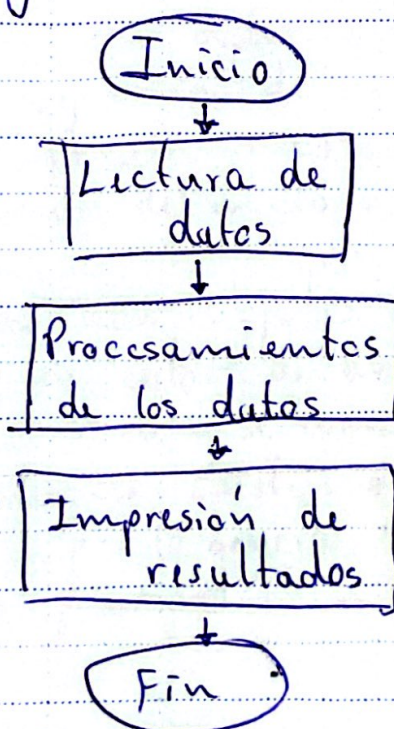 Inicio
Lectura de
datos
Procesamientos
de los datos
Impresión de
resultados
Fin